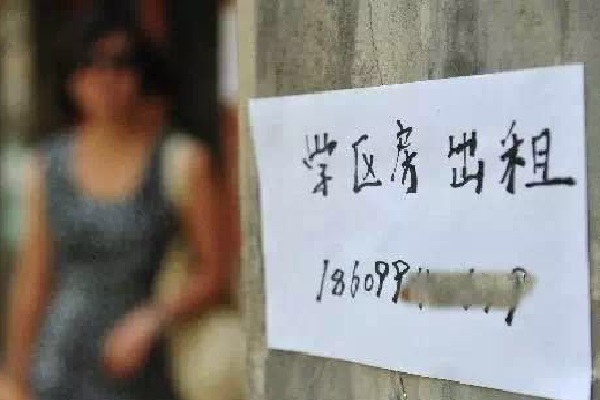 学区房出租
186099